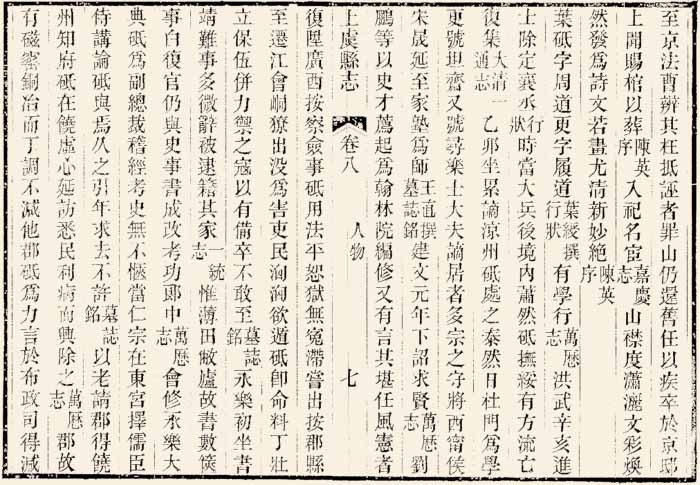 至京法曹辨其枉抵誣者罪山仍還舊任以疾卒於京邸
上聞賜棺以葬陳英序入祀名宦嘉慶志山襟度瀟灑文彩煥
然發爲詩文若畫尤清新妙絶陳英序
葉砥字周道更字履道葉綬撰行狀有學行萬厯志洪武辛亥進
士除定襄丞行狀時當大兵後境內蕭然砥撫綏有方流亡
復集大清一通志乙卯坐累謫涼州砥處之泰然日杜門爲學
更號坦齋又號尋樂士大夫謫居者多宗之守將西甯侯
宋晟延至家塾爲師王直撰墓誌銘建文元年下詔求賢萬厯志劉
鵬等以史才薦起爲翰林院編修又有言其堪任風憲者
上虞縣志 卷八 人物 七
復陞廣西按察僉事砥用法平恕獄無寃滯嘗出按郡縣
至遷江會峒獠出没爲害吏民洶洶欲遁砥卽命料丁壯
立保伍併力禦之寇以有備卒不敢至墓誌銘永樂初坐書
靖難事多微辭被逮籍其家一統志惟薄田敝廬故書數篋
事白復官仍與史事書成改考功郎中萬厯志會修永樂大
典砥爲副總裁稽經考史無不愜當仁宗在東宮擇儒臣
侍講論砥與焉久之引年求去不許墓誌銘以老請郡得饒
州知府砥在饒虛心延訪悉民利病而興除之萬厯志郡故
有磁窰銅冶而丁調不減他郡砥爲力言於布政司得減